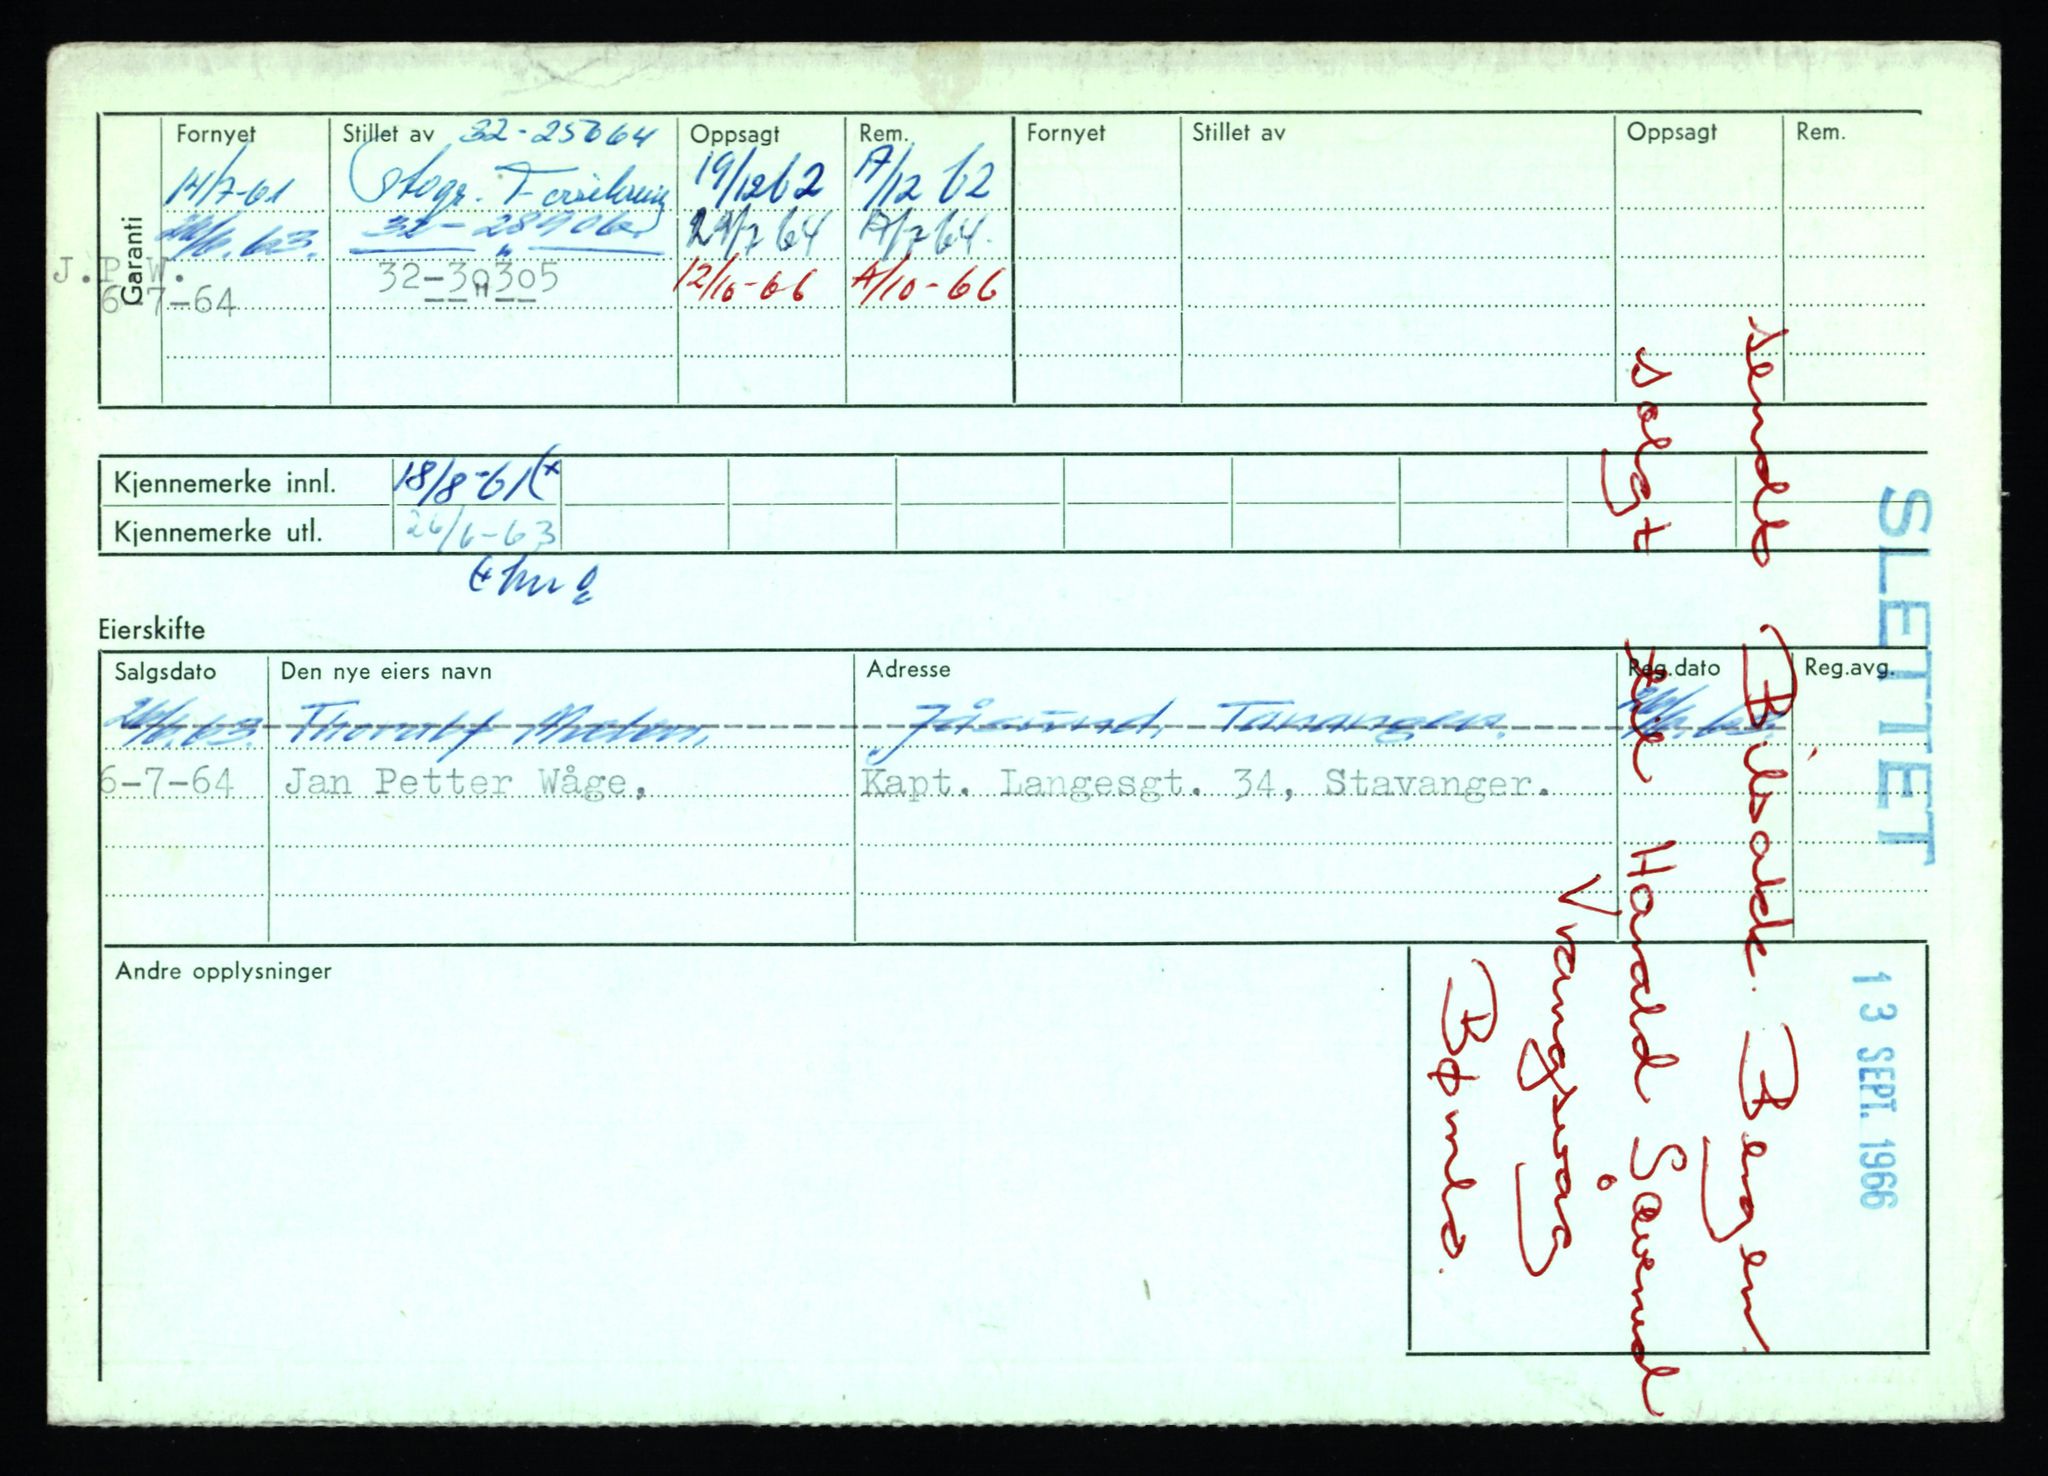 Garanti
Fornyet Stillet av 32-25664 Oppsagt Rem. Fornyet Stillet av Oppsagt Rem.
14/7-61 Stogr. Forsikring 19/12 62 A/12 62
26/6.63. 32-28906 29/7 64 A/7 64.
J.P.W.
6-7-64 32-30305 12/10-66 A/10-66
"
Kjennemerke innl. 18/8-61 (x
Kjennemerke utl. 26/6-63
Eierskifte
Salgsdato Den nye eiers navn Adresse Reg.dato Reg.avg.
26/6.63. Thoralf Jåsund, Tananger. 26/6.63.
6-7-64 Jan Petter Wåge, Kapt. Langesgt. 34, Stavanger.
Andre opplysninger
SLETTET
13 SEPT. 1966
sendt Bilsakk. Bergen
solgt til Harald Såvenud
Vrangsvåg
Bømlo.